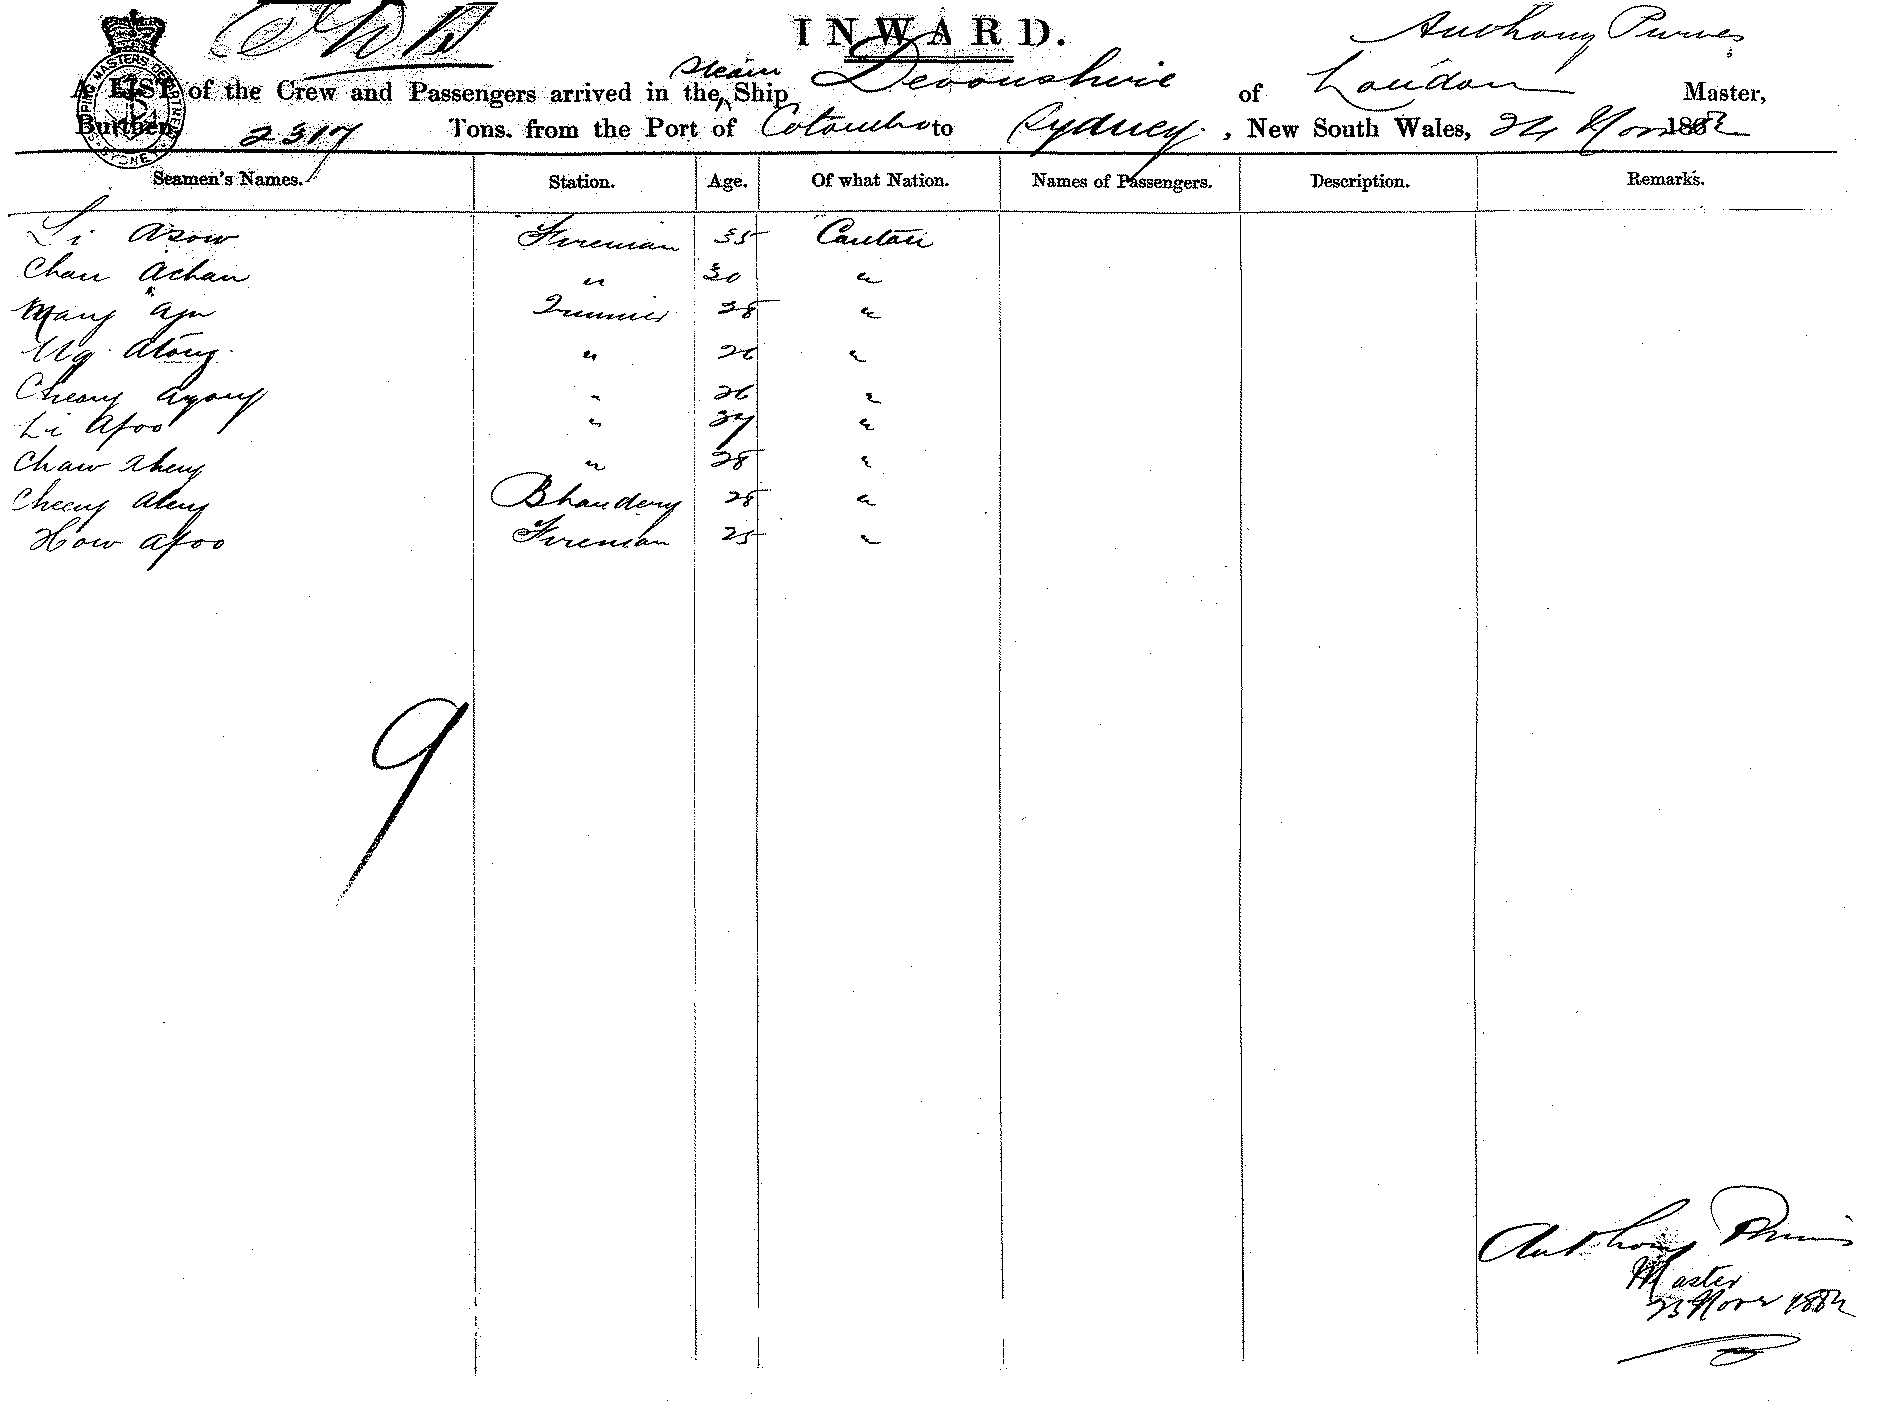 INWARD.
Anthony Purves
A LIST of the Crew and Passengers arrived in the steam Ship Devonshire of London Master,
Burthen, 2317 Tons. from the Port of Colombo to Sydney, New South Wales, 24 Novr 1882
Seamen's Names. Station. Age. Of what Nation. Names of Passengers. Description. Remarks.
Li Asow Fireman 35 Canton
Chan Achan " 30 "
Wang Ayu Trimmer 28 "
Ng Atong " 26 "
Cheong Ayong " 26 "
Li Afoo " 27 "
Chaw " 28 "
Cheeng Bhandery 28 "
How Afoo Fireman 25 "
9
Anthony Purves
Master
23 Novr 1882